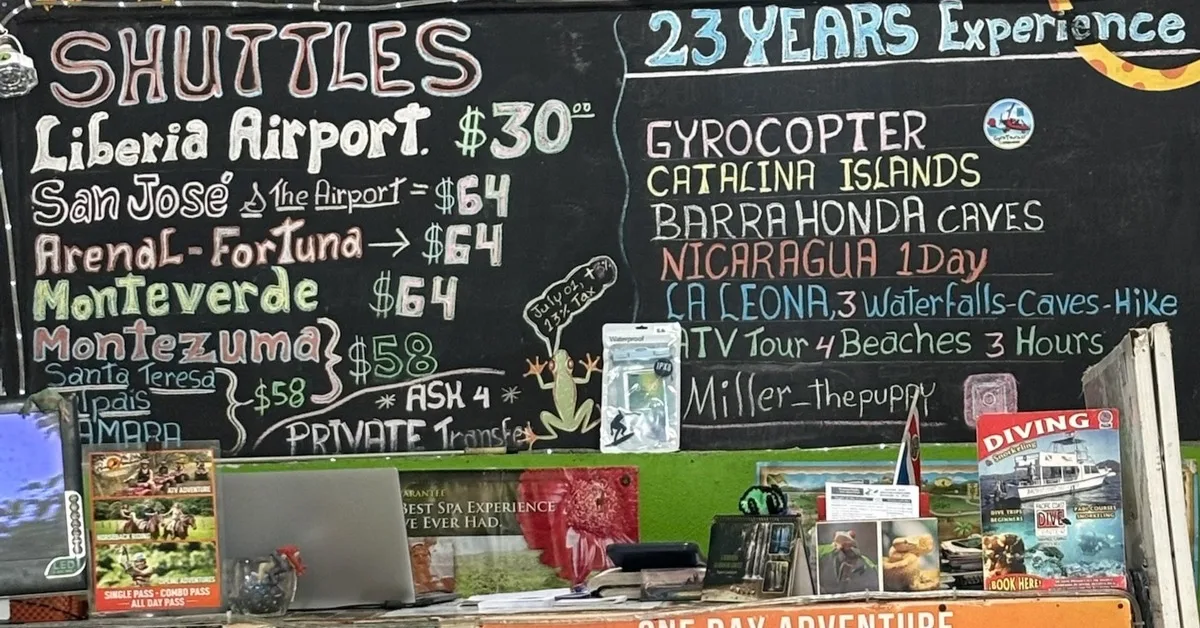 SHUTTLES
Liberia Airport. $30⁰⁰
San José & The Airport = $64
Arenal - Fortuna → $64
Monteverde $64
Montezuma } $58
Santa Teresa
lpaís } $58
AMARA
* ASK 4 *
PRIVATE Transfe
July 01, +
13% Tax
23 YEARS Experience
GYROCOPTER
CATALINA ISLANDS
BARRA HONDA CAVES
NICARAGUA 1Day
LA LEONA, 3 Waterfalls-Caves-Hike
ATV Tour 4 Beaches 3 Hours
Miller_thepuppy
Waterproof
IPX8
LED
ATV ADVENTURE
HORSEBACK RIDING
ZIPLINE ADVENTURES
SINGLE PASS - COMBO PASS
ALL DAY PASS
ARANTEE
BEST SPA EXPERIENCE
VE EVER HAD.
DIVING
Snorkeling
DIVE TRIPS
BEGINNERS
PADI COURSES
SNORKELING
DIVE
BOOK HERE!
ONE DAY ADVENTURE